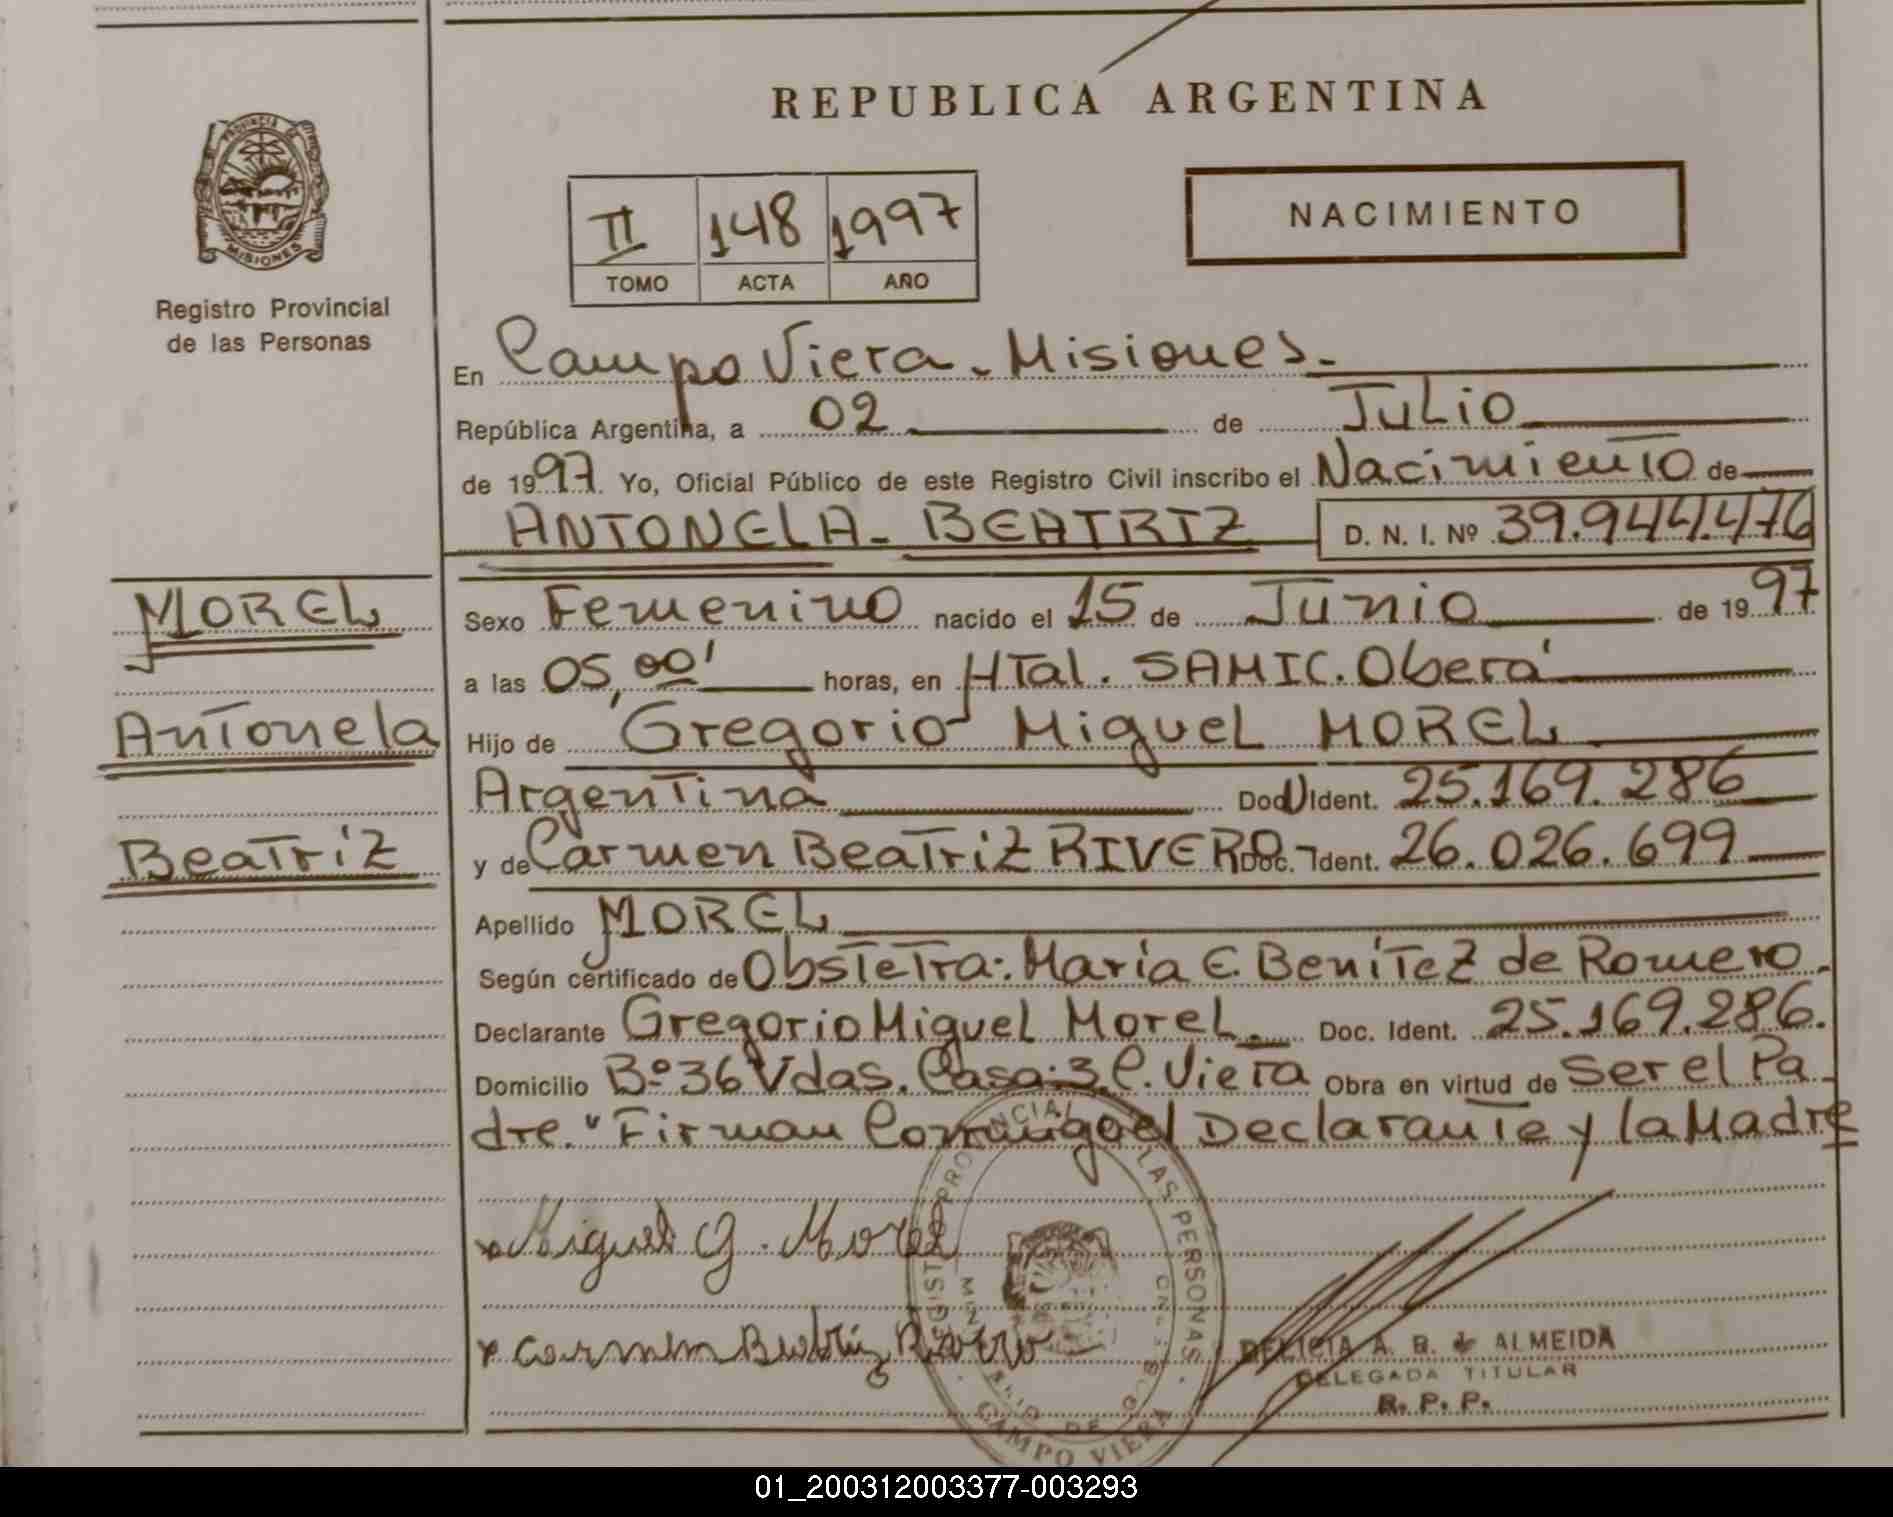 REPUBLICA ARGENTINA
PROVINCIA DE
MISIONES
Registro Provincial
de las Personas
II 148 1997
TOMO ACTA AÑO
NACIMIENTO
En Campo Viera - Misiones.-
República Argentina, a 02 de Julio
de 1997. Yo, Oficial Público de este Registro Civil inscribo el Nacimiento de
ANTONELA - BEATRIZ D. N. I. Nº 39.944.476
MOREL
Antonela
Beatriz
Sexo Femenino nacido el 15 de Junio de 1997
a las 05,00' horas, en HTal. SAMIC. Oberá
Hijo de Gregorio Miguel MOREL
Argentina Doc. Ident. 25.169.286
y de Carmen Beatriz RIVERO Doc. Ident. 26.026.699
Apellido MOREL
Según certificado de Obstetra: María E. Benítez de Romero.
Declarante Gregorio Miguel Morel. Doc. Ident. 25.169.286.
Domicilio Bº 36 Vdas. Casa: 3. C. Viera Obra en virtud de Ser el Pa
dre." Firman Conmigo el Declarante y la Madre
x Miguel G. Morel
x Carmen Beatriz Rivero
PROVINCIAL LAS PERSONAS
CAMPO VIERA
DELICIA A. B. de ALMEIDA
DELEGADA TITULAR
R. P. P.
01_200312003377-003293